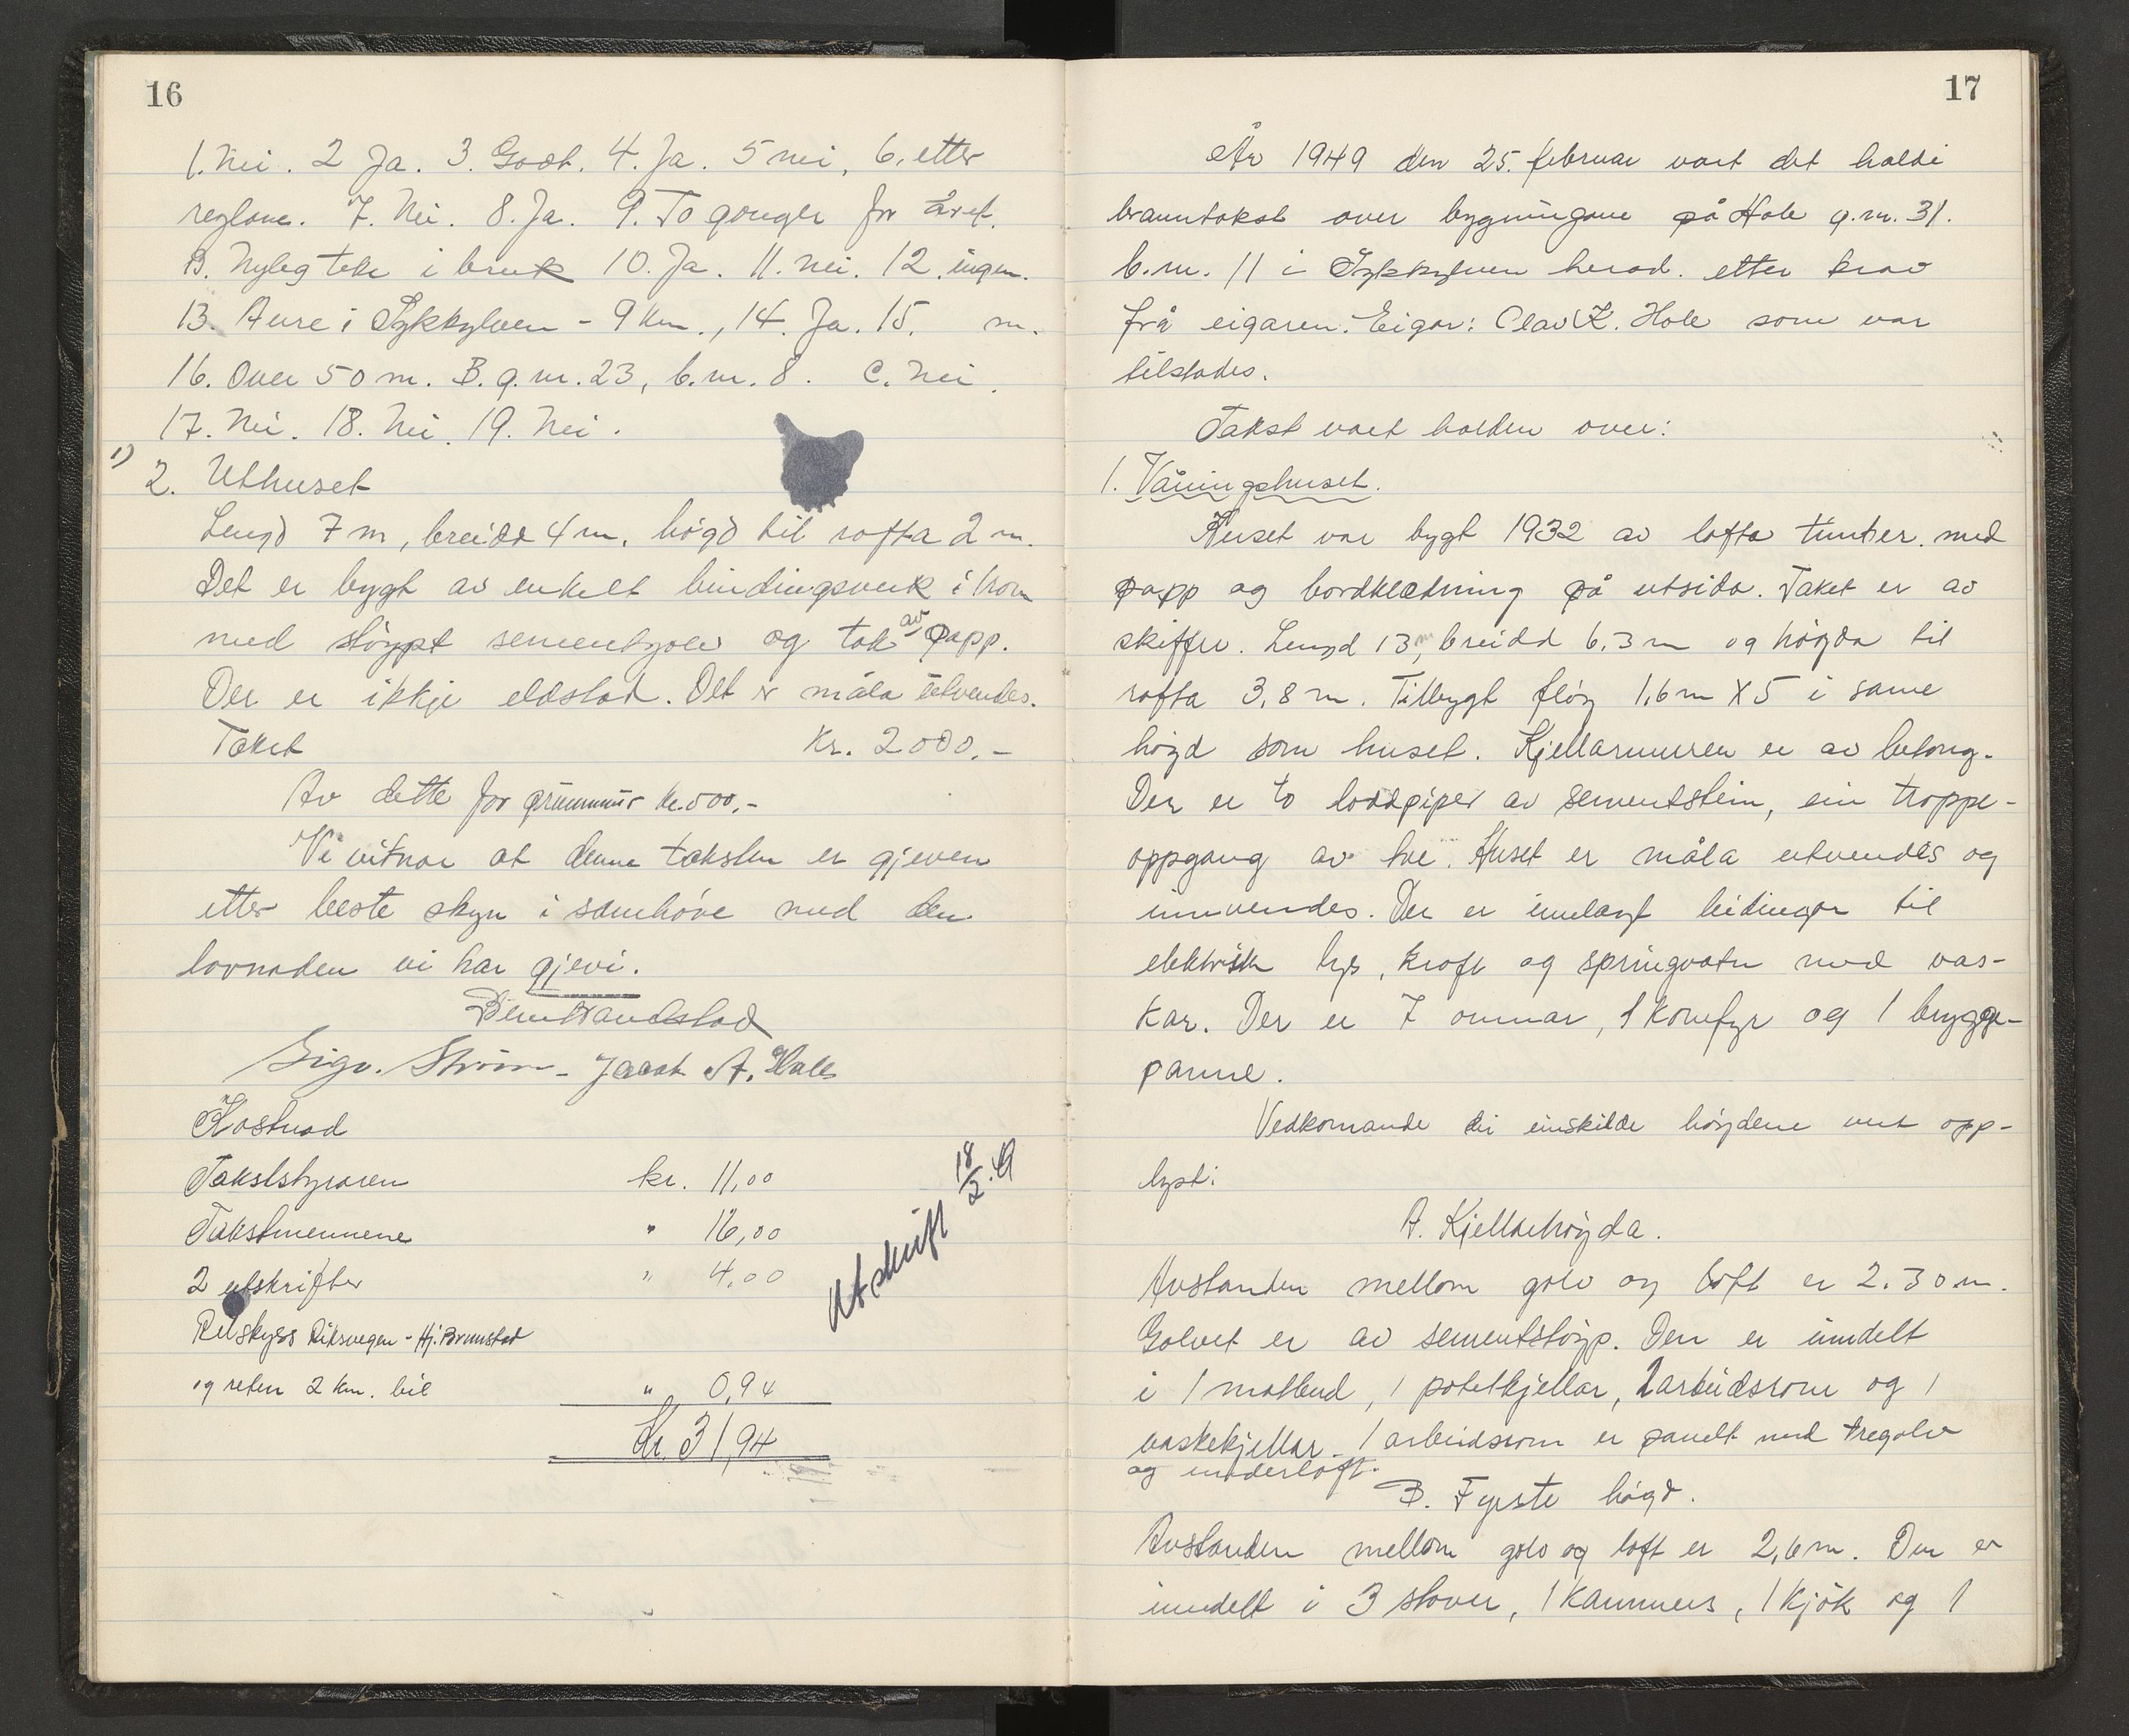 16
1. Nei. 2 Ja. 3. Godt. 4. Ja. 5 nei, 6. etter
reglane. 7. Nei. 8. Ja. 9. To gonger for året.
B. Nyleg teke i bruk 10. Ja. 11. nei. 12. ingen.
13. Aure i Sykkylven - 9 km., 14. Ja. 15. m.
16. Over 50 m. B. g.nr. 23, b.nr. 8. C. Nei.
17. Nei. 18. Nei. 19. Nei.
1)
2. Uthuset
Lengd 7 m, breidd 4 m, høgd til rafta 2 m.
Det er bygt av enkelt bindingsverk i
med støypt sementgolv og tak av papp.
Der er ikkje eldstad. Det er måla utvendes.
Takst Kr. 2000.-
Av dette for grunnmur kr. 500,-
Vi vitnar at denne taksten er gjeven
etter beste skyn i samhøve med den
lovnaden vi har gjevi.
Sigv. Strøm - Jacob A. Hole
Kostnad
Takststyraren kr. 11,00
Takstmennene " 16,00
2 utskrifter " 4,00
Utskrift 18/2.49
Reiskyss Riksvegen - Hj. Brunstad
og reten 2 km. bil " 0,94
Kr. 31,94
17
År 1949 den 25. februar vart det haldi
branntakst over bygningane på Hole g.nr. 31.
b.nr. 11 i Sykkylven herad. etter krav
frå eigaren. Eigar: Olav K. Hole som var
tilstades.
Takst vart halden over:
1. Våningshuset.
Huset var bygt 1932 av lafta timber. med
papp og bordklædning på utsida. Taket er av
skiffer. Lengd 13 m, breidd 6.3 m og høgda til
rafta 3,8 m. Tilbygt fløy 1,6 m X 5 i same
høgd som huset. Kjellarmuren er av betong.
Der er to loddpiper av sementstein, ein troppe-
oppgang av tre. Huset er måla utvendes og
innvendes. Der er innlagt leidingar til
elektrisk lys, kraft og springvatn med vas-
kar. Der er 7 omnar, 1 komfyr og 1 brygge-
panne.
Vedkomande dei einskilde høgdene vert opp-
lyst:
A. Kjellarhøgda.
Avstanden mellom golv og loft er 2.30 m.
Golvet er av sementstøyp. Den er inndelt
i 1 matbud, 1 potetkjellar, 2 arbeidsrom og 1
vaskekjellar. 1 arbeidsrom er panelt med tregolv
og underloft.
B. Fyrste høgd.
Avstanden mellom golv og loft er 2,6 m. Den er
inndelt i 3 stover, 1 kammers, 1 kjøk og 1